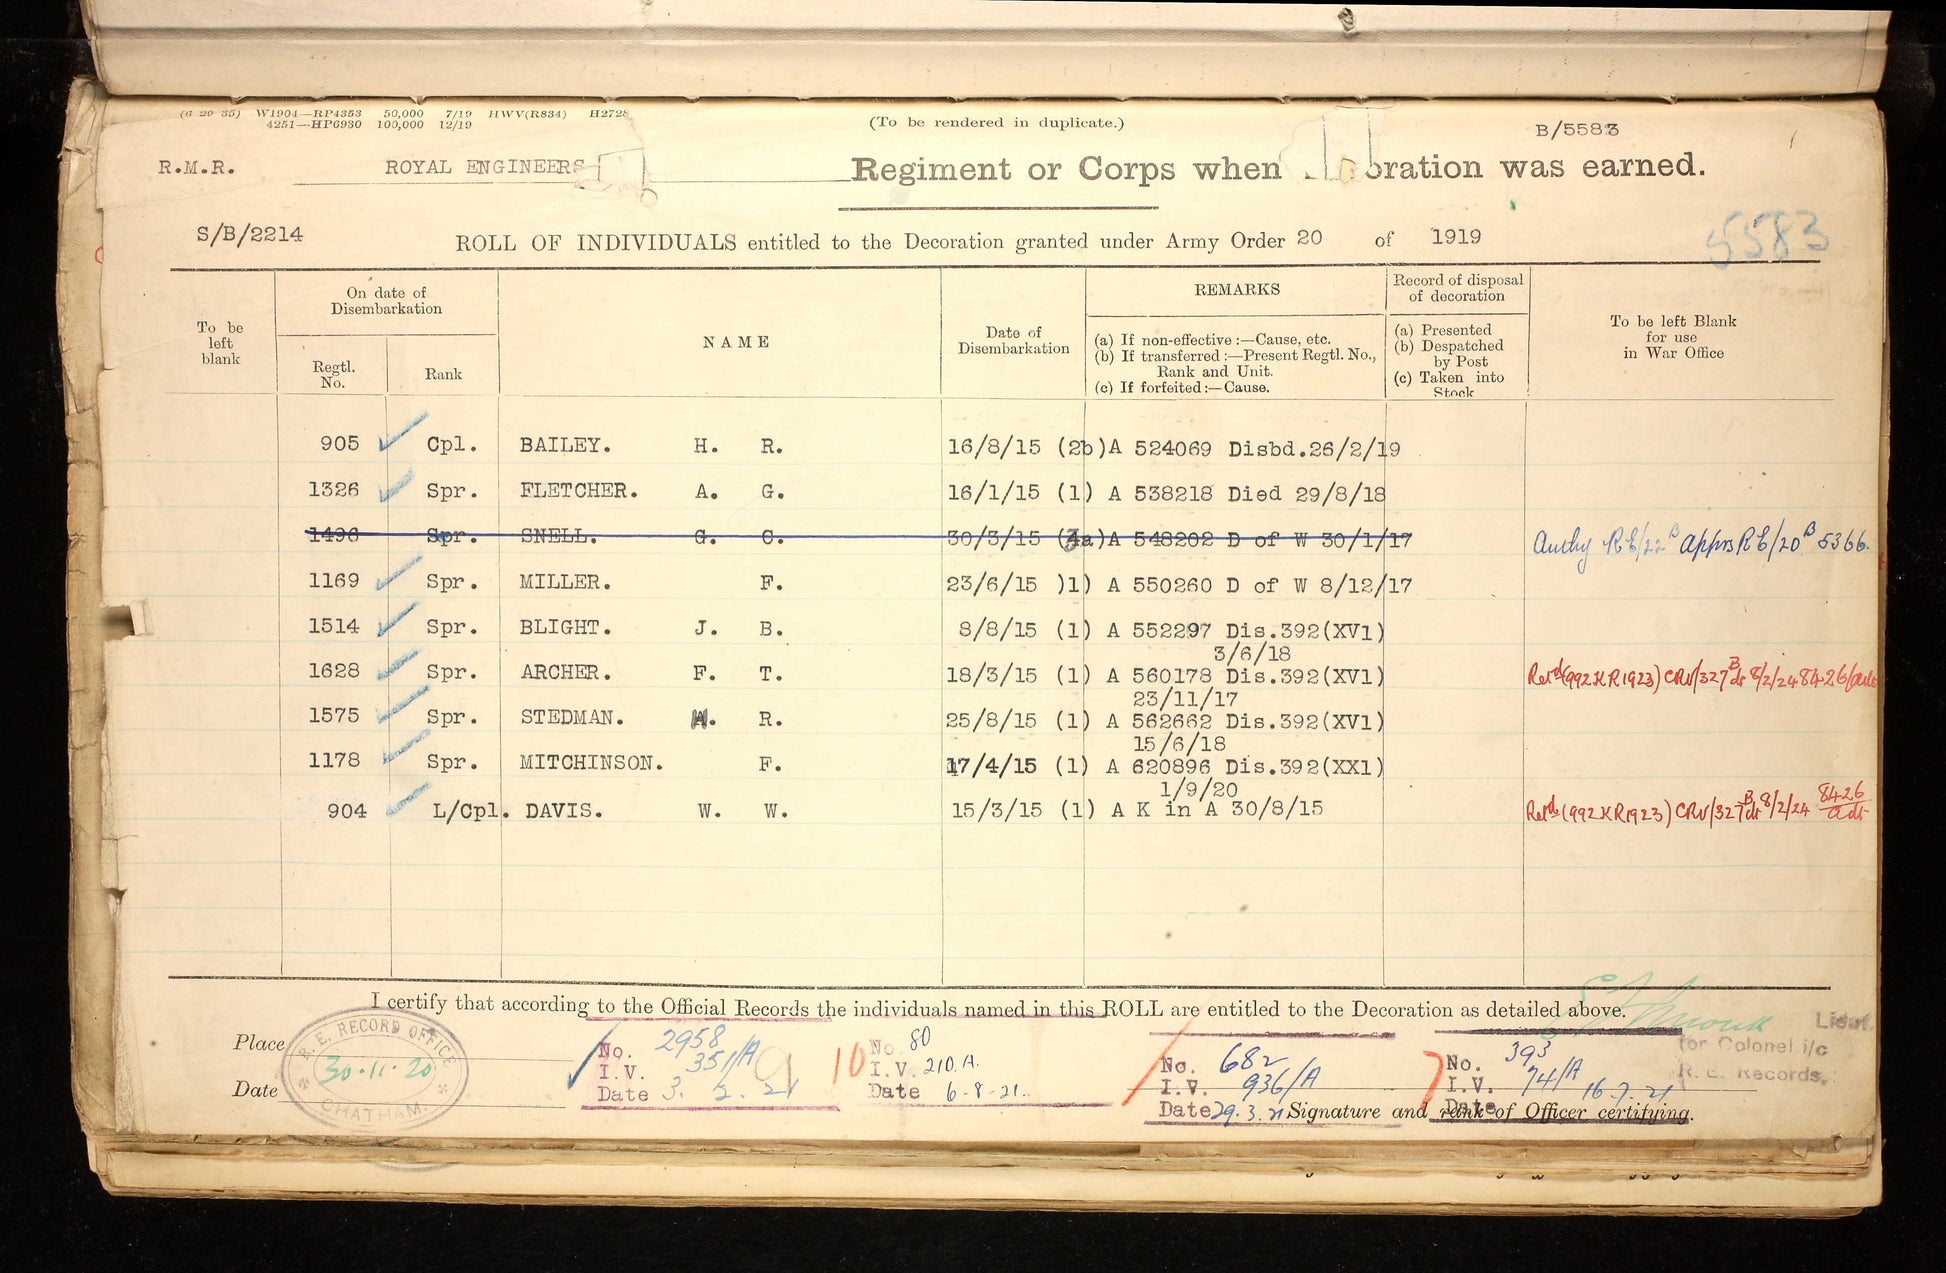 (6 29 35) W1904—RP4353 50,000 7/19 HWV(R834) H2728
4251—HP6930 100,000 12/19
(To be rendered in duplicate.)
B/5583
R.M.R. ROYAL ENGINEERS Regiment or Corps when oration was earned.
S/B/2214
ROLL OF INDIVIDUALS entitled to the Decoration granted under Army Order 20 of 1919
5583
To be left blank
On date of Disembarkation
Regtl. No.
Rank
NAME
Date of Disembarkation
REMARKS
(a) If non-effective:—Cause, etc.
(b) If transferred:—Present Regtl. No., Rank and Unit.
(c) If forfeited:—Cause.
Record of disposal of decoration
(a) Presented
(b) Despatched by Post
(c) Taken into Stock
To be left Blank for use in War Office
905 Cpl. BAILEY. H. R. 16/8/15 (2b)A 524069 Disbd.26/2/19
1326 Spr. FLETCHER. A. G. 16/1/15 (1) A 538218 Died 29/8/18
1496 Spr. SNELL. G. C. 30/3/15 (3a)A 548202 D of W 30/1/17 Authy RE/22B Apprs RE/20B 5366.
1169 Spr. MILLER. F. 23/6/15 )1) A 550260 D of W 8/12/17
1514 Spr. BLIGHT. J. B. 8/8/15 (1) A 552297 Dis.392(XV1)
3/6/18
1628 Spr. ARCHER. F. T. 18/3/15 (1) A 560178 Dis.392(XV1) Retd (992 KR 1923) CRV/327B dt 8/2/24 8426/adt
23/11/17
1575 Spr. STEDMAN. W. R. 25/8/15 (1) A 562662 Dis.392(XV1)
15/6/18
1178 Spr. MITCHINSON. F. 17/4/15 (1) A 620896 Dis.392(XX1)
1/9/20
904 L/Cpl. DAVIS. W. W. 15/3/15 (1) A K in A 30/8/15 Retd (992 KR 1923) CRV/327B dt 8/2/24 8426/adt
I certify that according to the Official Records the individuals named in this ROLL are entitled to the Decoration as detailed above.
Place
Date
R. E. RECORD OFFICE
30.11.20
CHATHAM.
No. 2958
I.V. 351/A
Date 3. 2. 21
10
No. 80
I.V. 210.A.
Date 6.8.21.
No. 682
I.V. 936/A
Date 29.3.21
No. 393
I.V. 74/A
Date 16.7.21
Lieut.
for Colonel i/c
R. E. Records.
Signature and rank of Officer certifying.